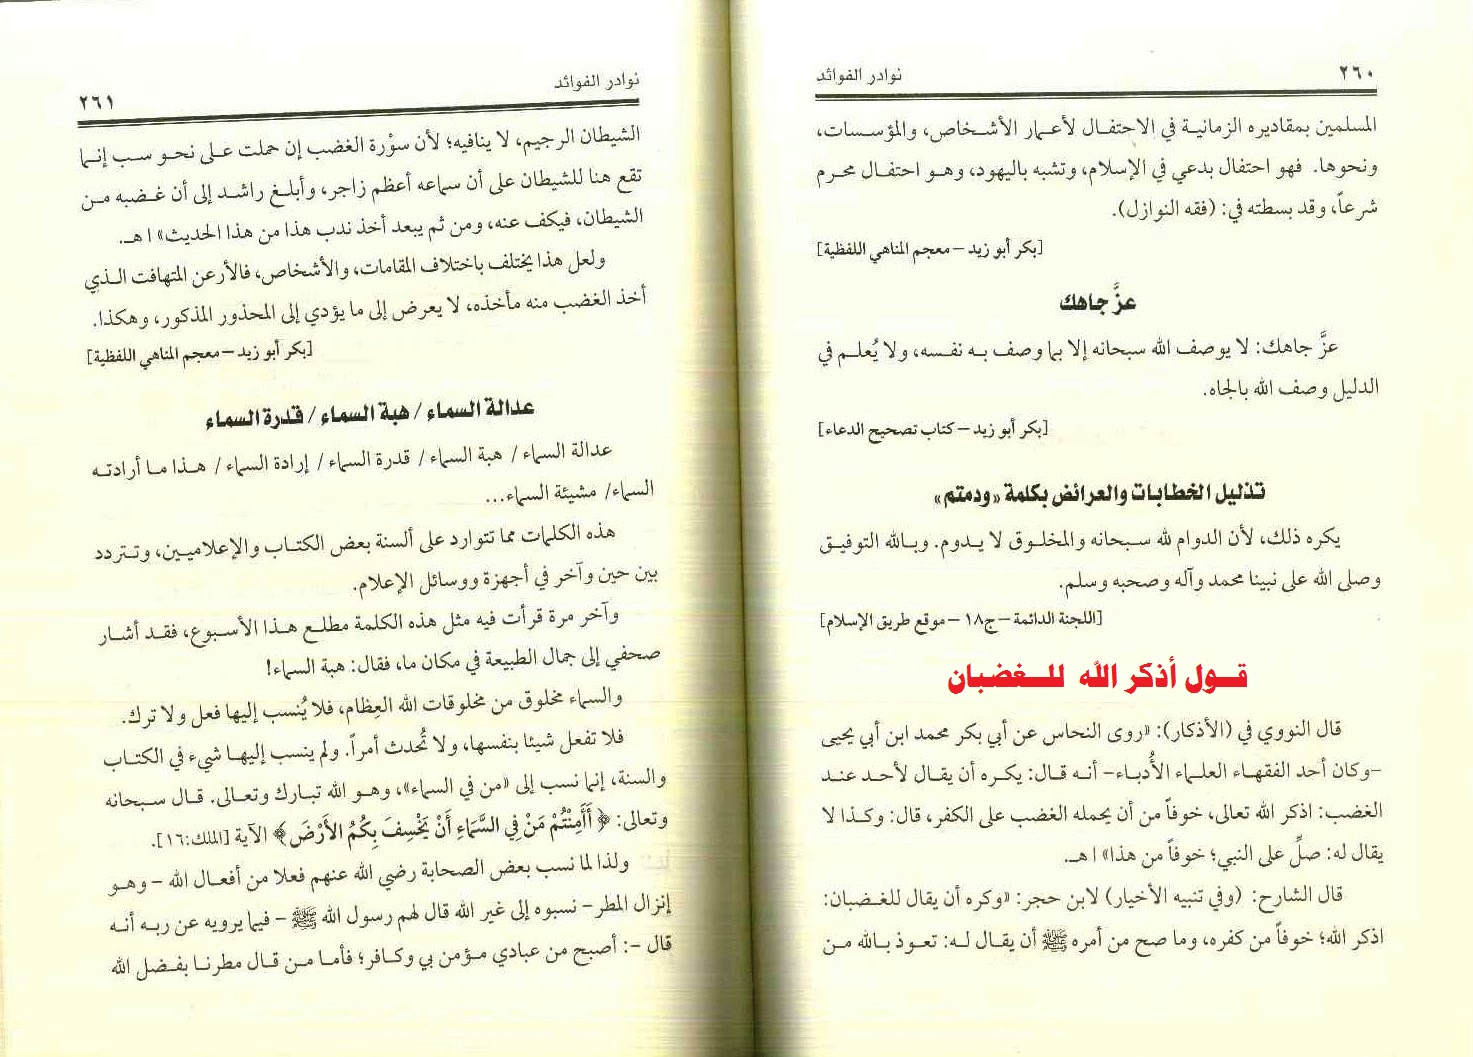 ٢٦٠
نوادر الفوائد
المسلمين بمقاديره الزمانية في الاحتفال لأعمار الأشخاص، والمؤسسات،
ونحوها. فهو احتفال بدعي في الإسلام، وتشبه باليهود، وهو احتفال محرم
شرعاً، وقد بسطته في: (فقه النوازل).
[بكر أبو زيد – معجم المناهي اللفظية]
عزَّ جاهك
عزَّ جاهك: لا يوصف الله سبحانه إلا بما وصف به نفسه، ولا يُعلم في
الدليل وصف الله بالجاه.
[بكر أبو زيد – كتاب تصحيح الدعاء]
تذليل الخطابات والعرائض بكلمة «ودمتم»
يكره ذلك، لأن الدوام لله سبحانه والمخلوق لا يدوم. وبالله التوفيق
وصلى الله على نبينا محمد وآله وصحبه وسلم.
[اللجنة الدائمة – ج١٨ – موقع طريق الإسلام]
قول أذكر الله للغضبان
قال النووي في (الأذكار): «روى النحاس عن أبي بكر محمد ابن أبي يحيى
-وكان أحد الفقهاء العلماء الأُدباء- أنه قال: يكره أن يقال لأحد عند
الغضب: اذكر الله تعالى، خوفاً من أن يحمله الغضب على الكفر، قال: وكذا لا
يقال له: صلِّ على النبي؛ خوفاً من هذا» ا هـ.
قال الشارح: (وفي تنبيه الأخيار) لابن حجر: «وكره أن يقال للغضبان:
اذكر الله؛ خوفاً من كفره، وما صح من أمره ﷺ أن يقال له: تعوذ بالله من
نوادر الفوائد
٢٦١
الشيطان الرجيم، لا ينافيه؛ لأن سوْرة الغضب إن حملت على نحو سب إنما
تقع هنا للشيطان على أن سماعه أعظم زاجر، وأبلغ راشد إلى أن غضبه من
الشيطان، فيكف عنه، ومن ثم يبعد أخذ ندب هذا من هذا الحديث» ا هـ.
ولعل هذا يختلف باختلاف المقامات، والأشخاص، فالأرعن المتهافت الذي
أخذ الغضب منه مأخذه، لا يعرض إلى ما يؤدي إلى المحذور المذكور، وهكذا.
[بكر أبو زيد – معجم المناهي اللفظية]
عدالة السماء / هبة السماء / قدرة السماء
عدالة السماء / هبة السماء / قدرة السماء / إرادة السماء / هذا ما أرادته
السماء/ مشيئة السماء...
هذه الكلمات مما تتوارد على ألسنة بعض الكتاب والإعلاميين، وتتردد
بين حين وآخر في أجهزة ووسائل الإعلام.
وآخر مرة قرأت فيه مثل هذه الكلمة مطلع هذا الأسبوع، فقد أشار
صحفي إلى جمال الطبيعة في مكان ما، فقال: هبة السماء!
والسماء مخلوق من مخلوقات الله العِظام، فلا يُنسب إليها فعل ولا ترك.
فلا تفعل شيئا بنفسها، ولا تُحدث أمراً. ولم ينسب إليها شيء في الكتاب
والسنة، إنما نسب إلى «من في السماء»، وهو الله تبارك وتعالى. قال سبحانه
وتعالى: ﴿ أَأَمِنْتُمْ مَنْ فِي السَّمَاءِ أَنْ يَخْسِفَ بِكُمُ الأَرْضَ ﴾ الآية [الملك:١٦].
ولذا لما نسب بعض الصحابة رضي الله عنهم فعلا من أفعال الله – وهو
إنزال المطر – نسبوه إلى غير الله قال لهم رسول الله ﷺ – فيما يرويه عن ربه أنه
قال –: أصبح من عبادي مؤمن بي وكافر؛ فأما من قال مطرنا بفضل الله